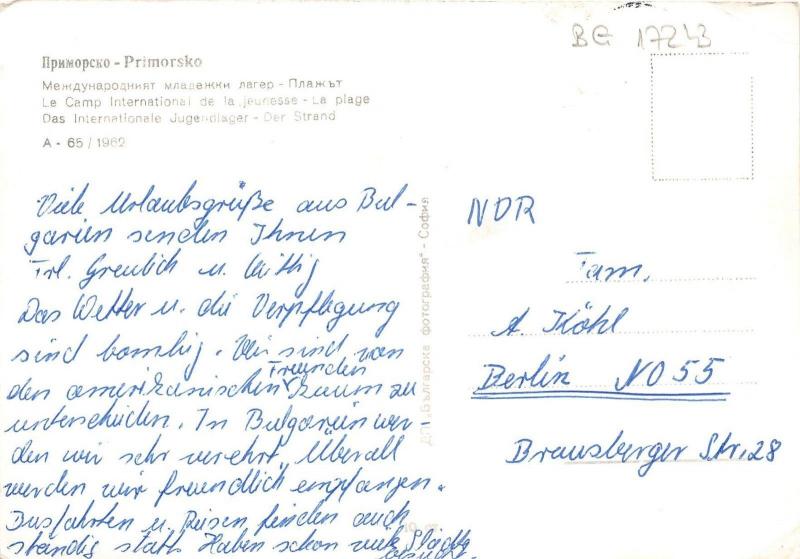 BG 17243
Приморско - Primorsko
Международният младежки лагер - Плажът
Le Camp International de la jeunesse - La plage
Das Internationale Jugendlager - Der Strand
А - 65 / 1962
Viele Urlaubsgrüße aus Bul-
garien senden Ihnen
Frl. Greulich u. Wittig
Das Wetter u. die Verpflegung
sind bombig. Wir sind von
den amerikanischen Freunden kaum zu
unterscheiden. In Bulgarien wer
den wir sehr verehrt. Überall
werden wir freundlich empfangen.
Busfahrten u. Reisen finden auch
ständig statt. Haben schon viele Städte
besucht.
ДП „Българска фотография" - София
NDR
Fam.
A. Köhl
Berlin NO 55
Braunsberger Str. 28